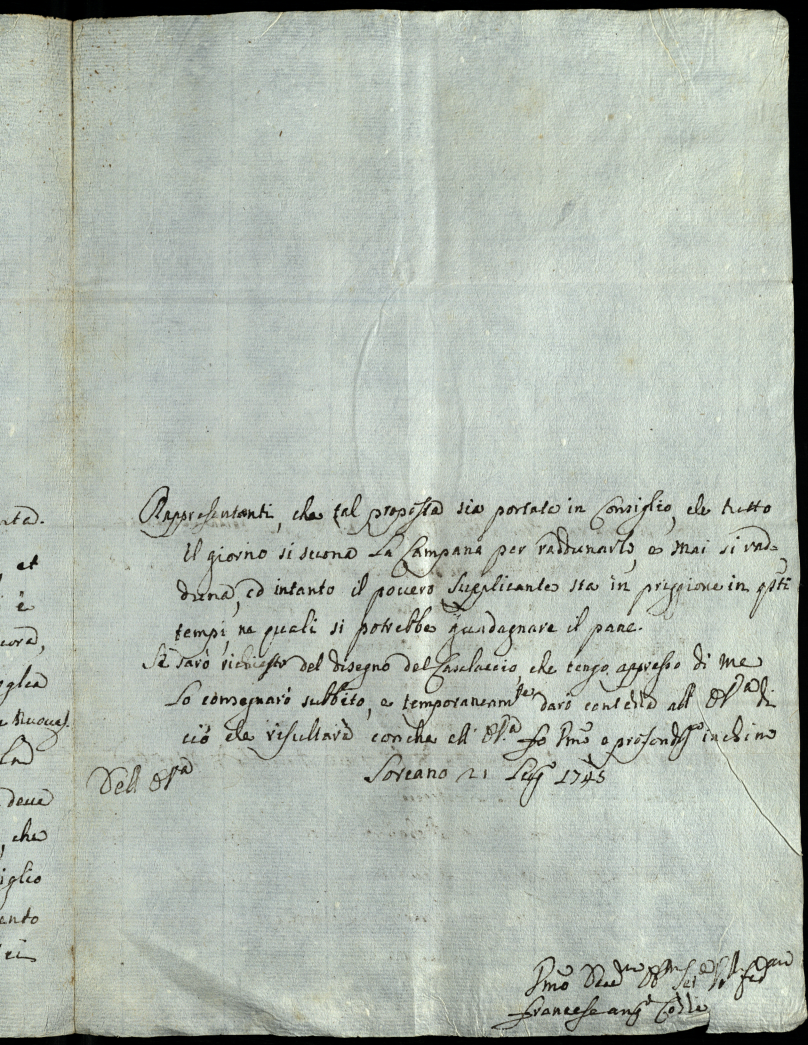 nta.
et
è
cora,
oglia
e nuove
La
deue
, che
iglio
anto
ei
Rappresentanti, che tal proposta sia portata in Consiglio, che tutto
il giorno si suona La Campana per raddunarlo, e mai si rad=
duna, ed intanto il pouero supplicante sta in priggione in qsti
tempi, ne quali si potrebbe guadagnare il pane.
Se sarò richiesto del disegno del Casalaccio, che tengo appresso di me
Lo consegnarò subbito, e temporaneamte darò contezza all'
ciò che risultarà con che all' fo e profondissº inchino
Dell'
Soreano 21 Lugº 1745
Francescº Angº